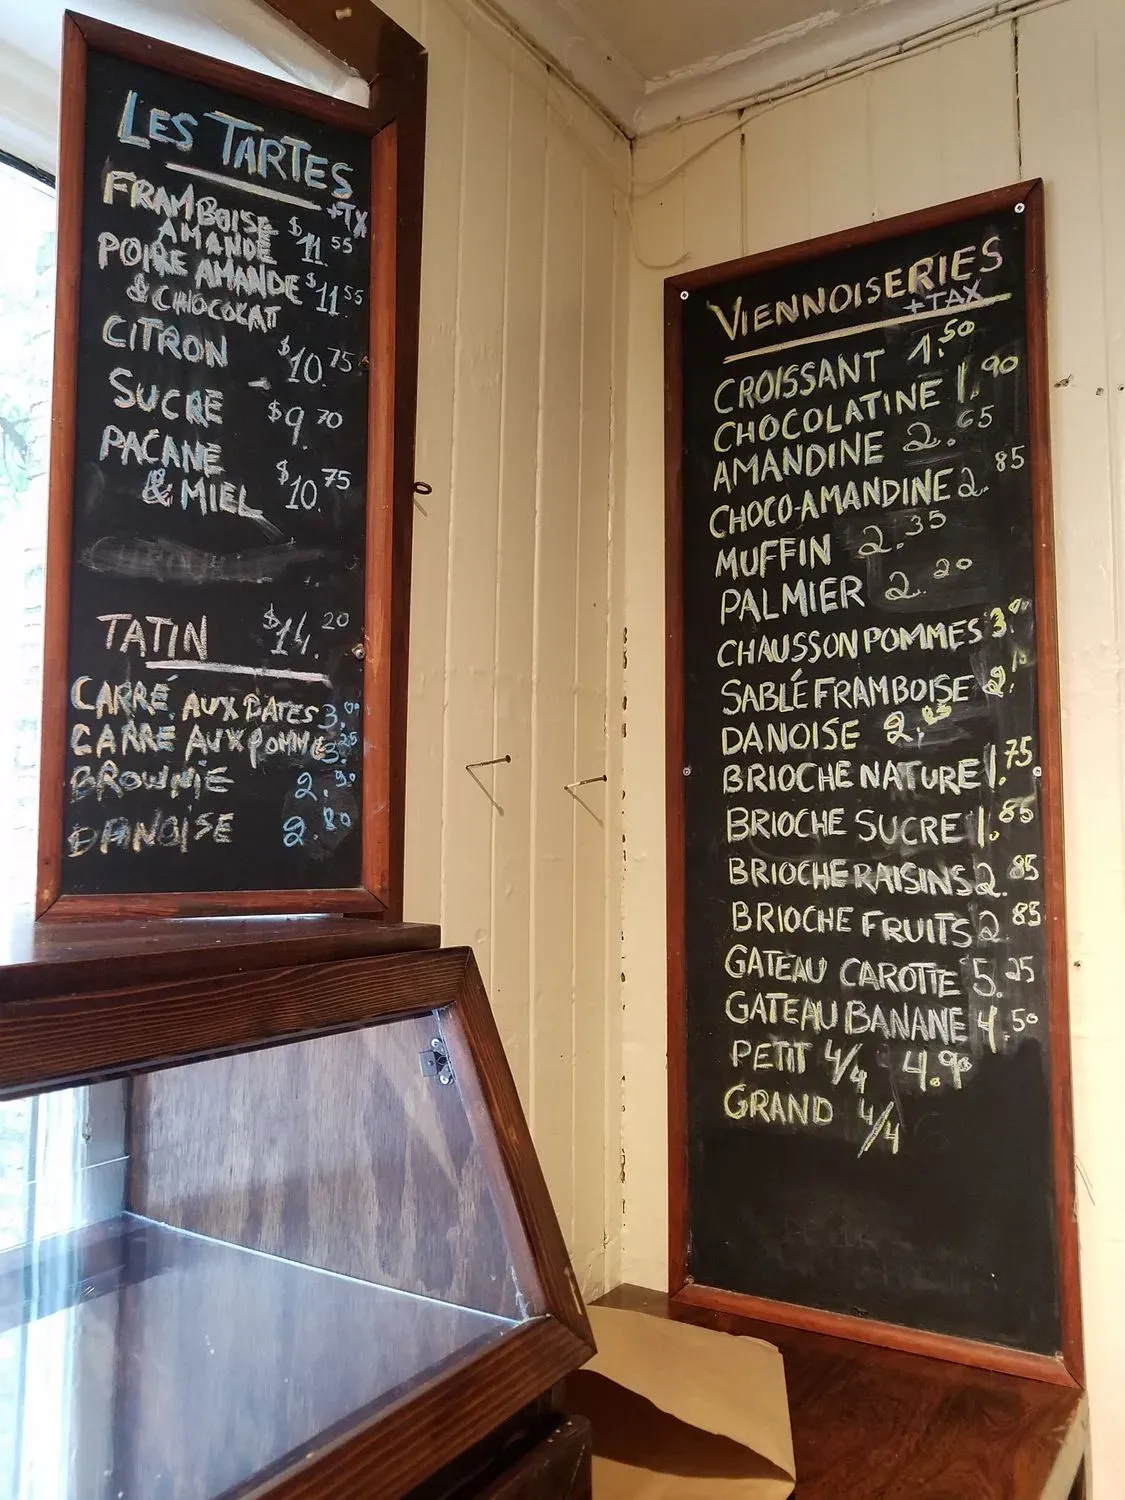 LES TARTES
+TX
FRAMBOISE $11.55
AMANDE
POIRE AMANDE $11.55
& CHOCOLAT
CITRON $10.75
SUCRE $9.70
PACANE
& MIEL $10.75
TATIN $14.20
CARRÉ AUX DATES 3.00
CARRÉ AUX POMME 3.25
BROWNIE 2.90
DANOISE 2.80
VIENNOISERIES
+TAX
CROISSANT 1.50
CHOCOLATINE 1.90
AMANDINE 2.65
CHOCO-AMANDINE 2.85
MUFFIN 2.35
PALMIER 2.20
CHAUSSON POMMES 3.00
SABLÉ FRAMBOISE 2.
DANOISE 2.
BRIOCHE NATURE 1.75
BRIOCHE SUCRE 1.
BRIOCHE RAISINS 2.85
BRIOCHE FRUITS 2.85
GATEAU CAROTTE 5.25
GATEAU BANANE 4.50
PETIT 4/4 4.90
GRAND 4/4